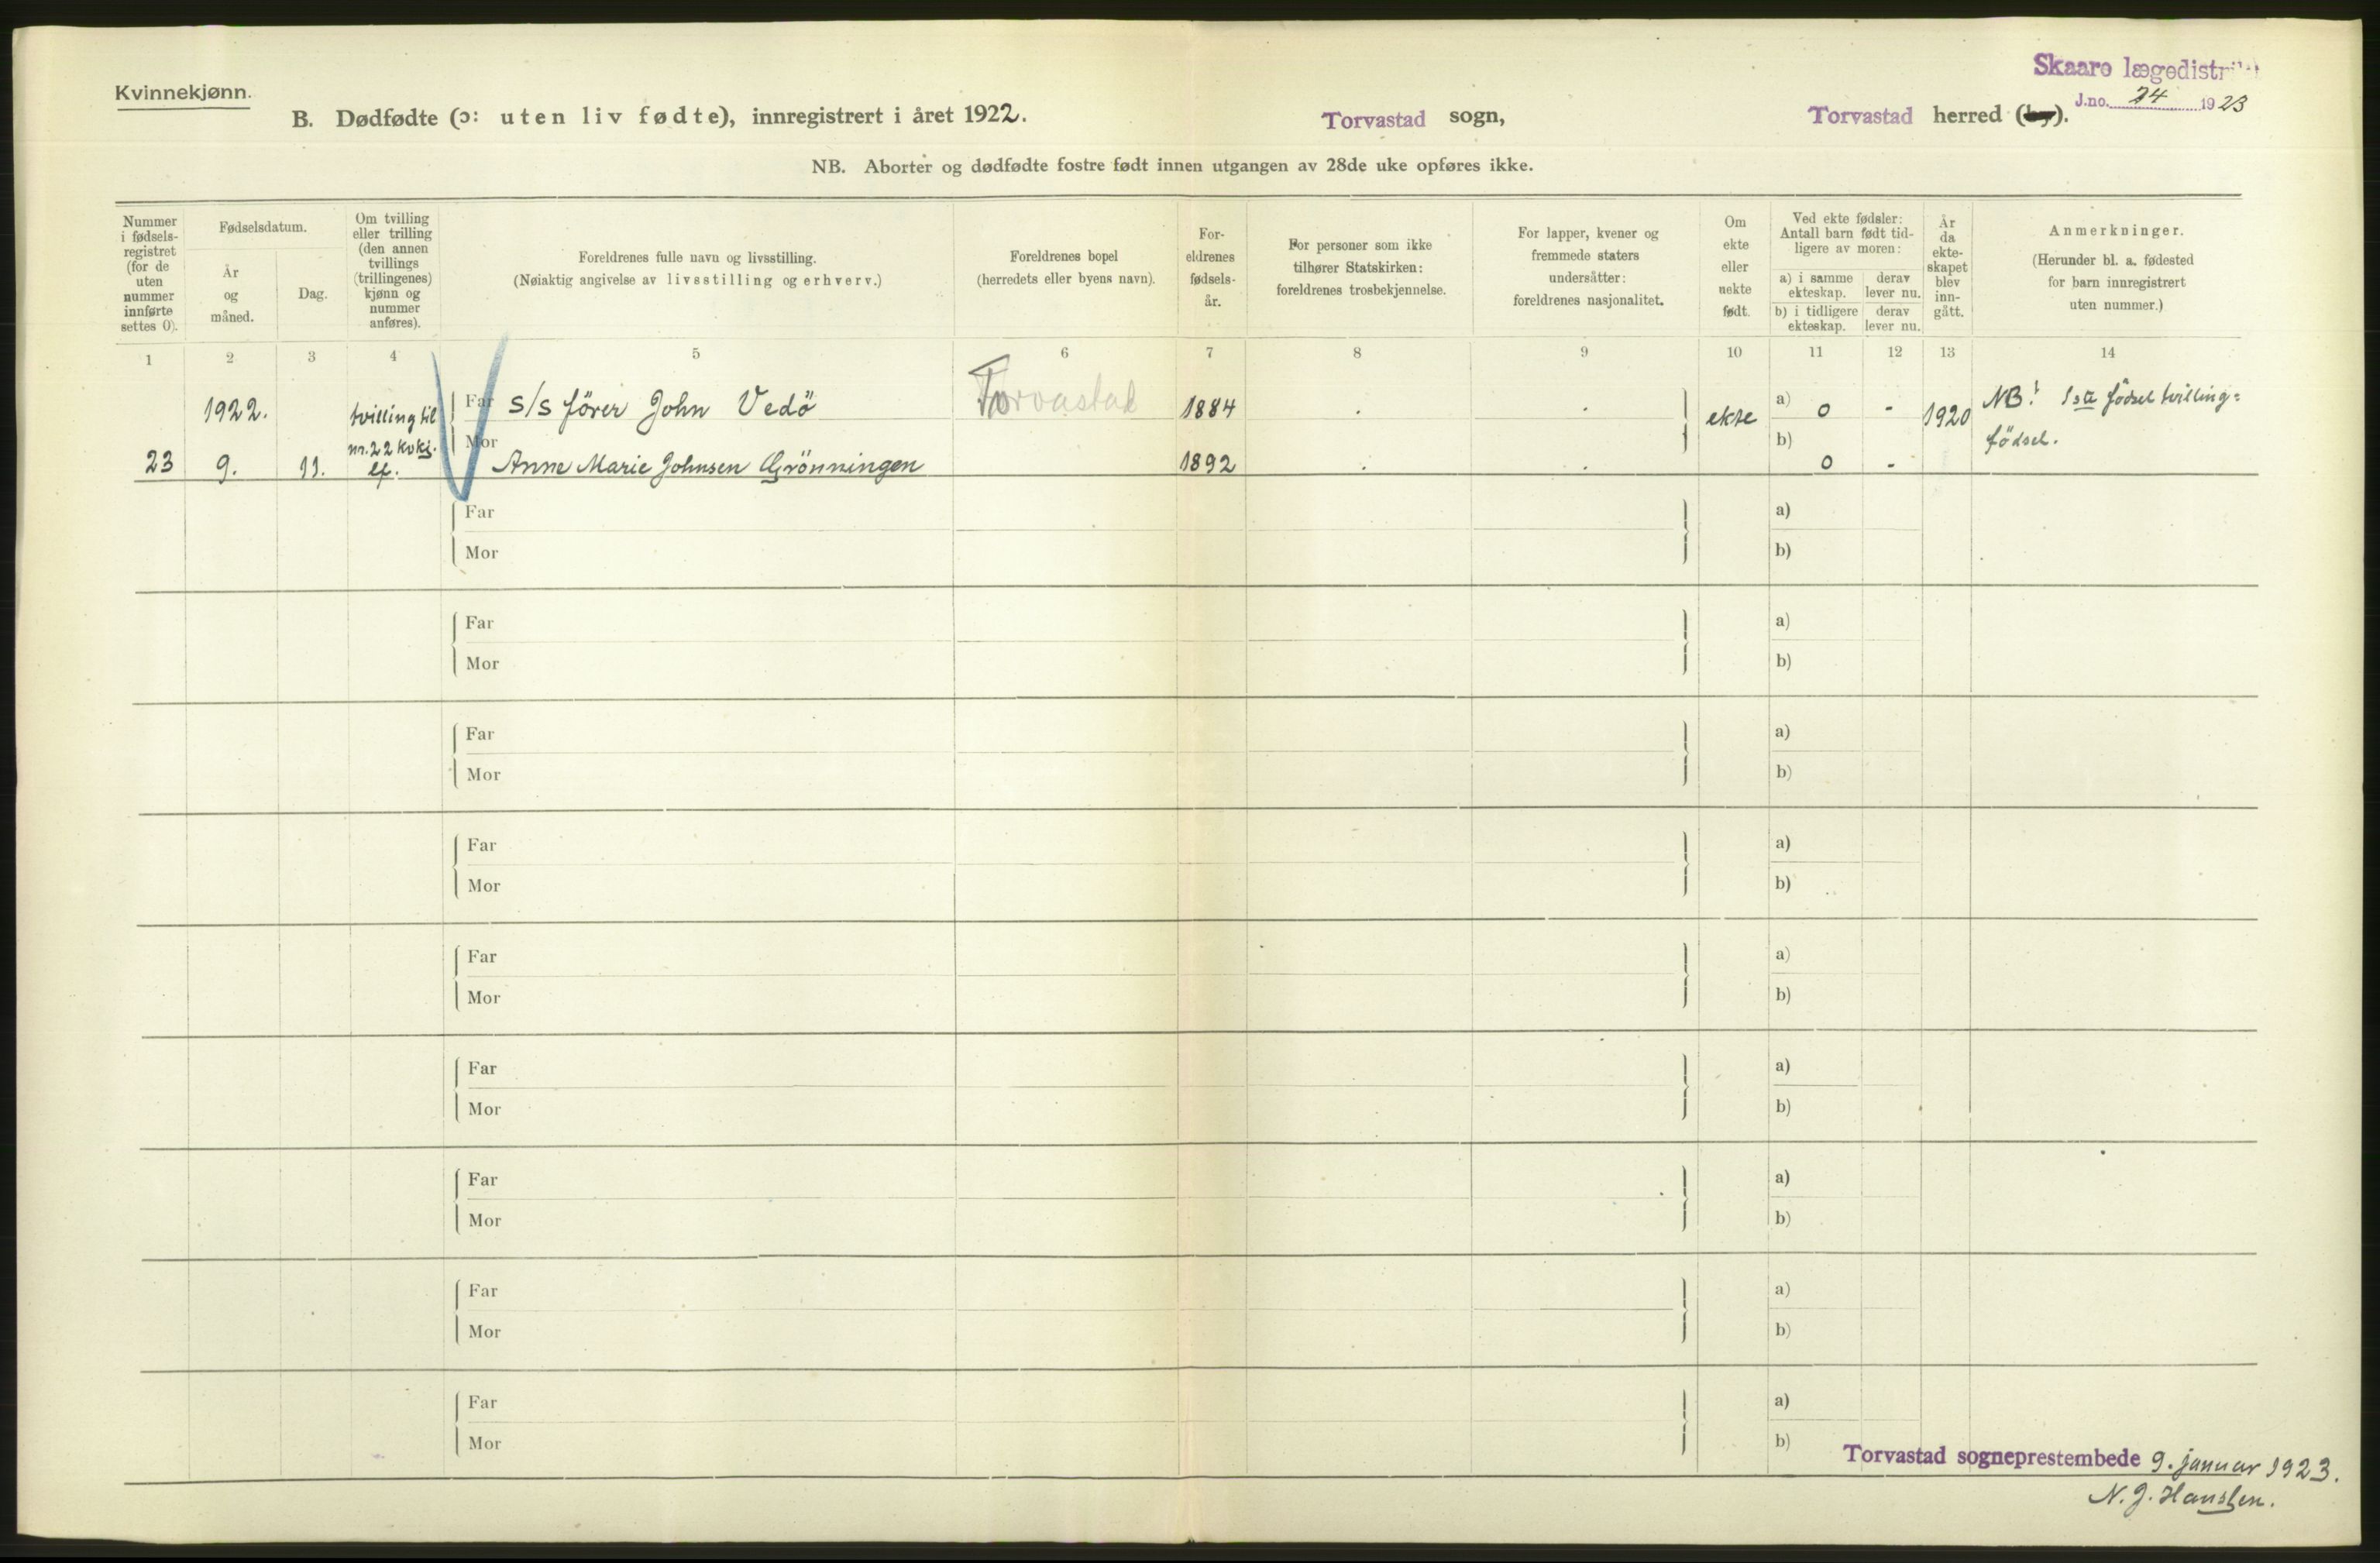 Kvinnekjønn.
Skaare lægedistri
J.no. 24 1923
B. Dødfødte (ɔ: uten liv fødte), innregistrert i året 1922. Torvastad sogn, Torvastad herred (by).
NB. Aborter og dødfødte fostre født innen utgangen av 28de uke opføres ikke.
Nummer
i fødsels-
registret
(for de
uten
nummer
innførte
settes 0).
Fødselsdatum.
År
og
måned.
Dag.
Om tvilling
eller trilling
(den annen
tvillings
(trillingenes)
kjønn og
nummer
anføres).
Foreldrenes fulle navn og livsstilling.
(Nøiaktig angivelse av livsstilling og erhverv.)
Foreldrenes bopel
(herredets eller byens navn).
For-
eldrenes
fødsels-
år.
For personer som ikke
tilhører Statskirken:
foreldrenes trosbekjennelse.
For lapper, kvener og
fremmede staters
undersåtter:
foreldrenes nasjonalitet.
Om
ekte
eller
uekte
født.
Ved ekte fødsler:
Antall barn født tid-
ligere av moren:
a) i samme
ekteskap.
derav
lever nu.
b) i tidligere
ekteskap.
derav
lever nu.
År
da
ekte-
skapet
blev
inn-
gått.
Anmerkninger.
(Herunder bl. a. fødested
for barn innregistrert
uten nummer.)
1 2 3 4 5 6 7 8 9 10 11 12 13 14
1922. tvilling til Far S/S förer John Vedö Torvastad 1884 . . ekte a) 0 - 1920 NB! 1ste födsel tvilling=
nr. 22 kvkj. Mor b) födsel.
23 9. 11. lf. Anne Marie Johnsen Grönningen 1892 . . 0 -
Far a)
Mor b)
Far a)
Mor b)
Far a)
Mor b)
Far a)
Mor b)
Far a)
Mor b)
Far a)
Mor b)
Far a)
Mor b)
Far a)
Mor b)
Far a)
Mor b)
Torvastad sogneprestembede 9. januar 1923.
N. J. Hansten.